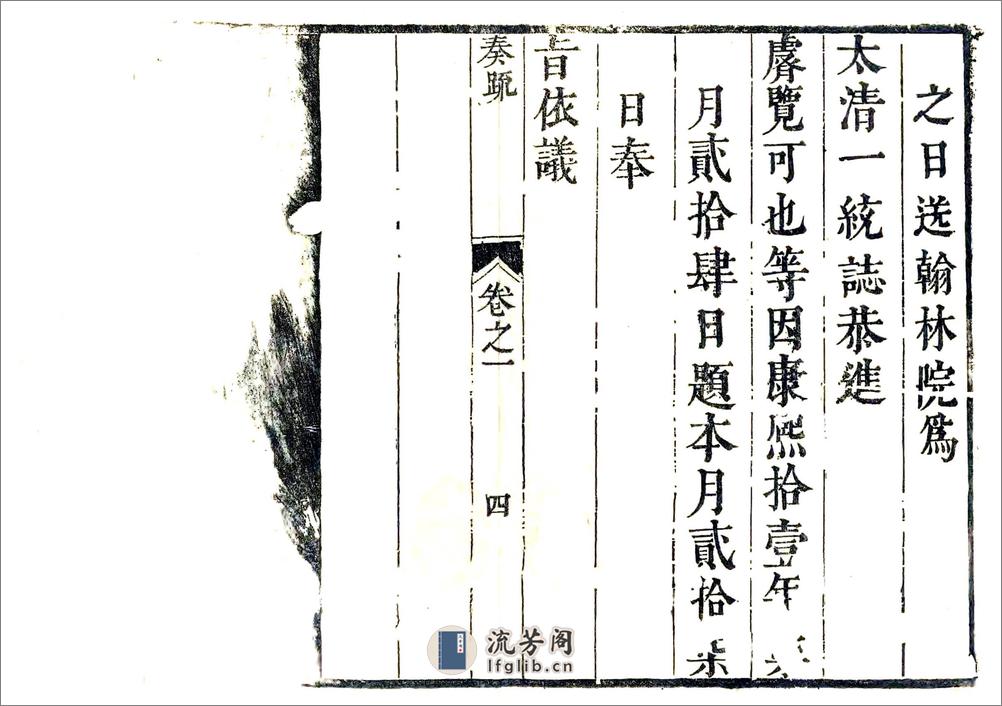 之日送翰林院爲
太清一統誌恭進
睿覽可也等因康熙拾壹年
月貳拾肆日題本月貳拾
日奉
旨依議
奏䟽 卷之一 四
流芳阁
lfglib.cn